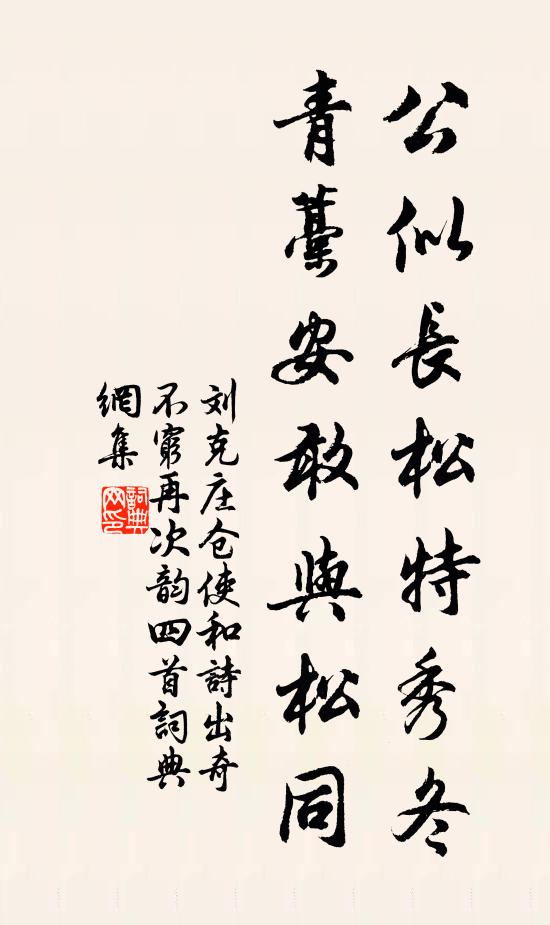 公似長松特秀冬
青薹安敢與松同
刘克庄仓使和詩出奇
不窮再次韵四首詞典
網集
詞典
网印